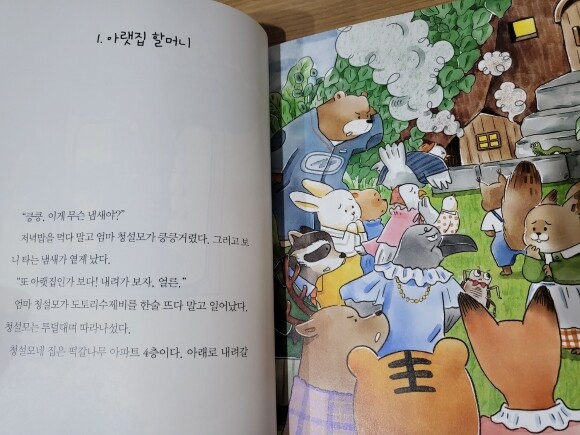 1. 아랫집 할머니
“킁킁, 이게 무슨 냄새야?”
저녁밥을 먹다 말고 엄마 청설모가 킁킁거렸다. 그러고 보
니 타는 냄새가 옅게 났다.
“또 아랫집인가 보다! 내려가 보자, 얼른.”
엄마 청설모가 도토리수제비를 한술 뜨다 말고 일어났다.
청설모는 투덜대며 따라나섰다.
청설모네 집은 떡갈나무 아파트 4층이다. 아래로 내려갈